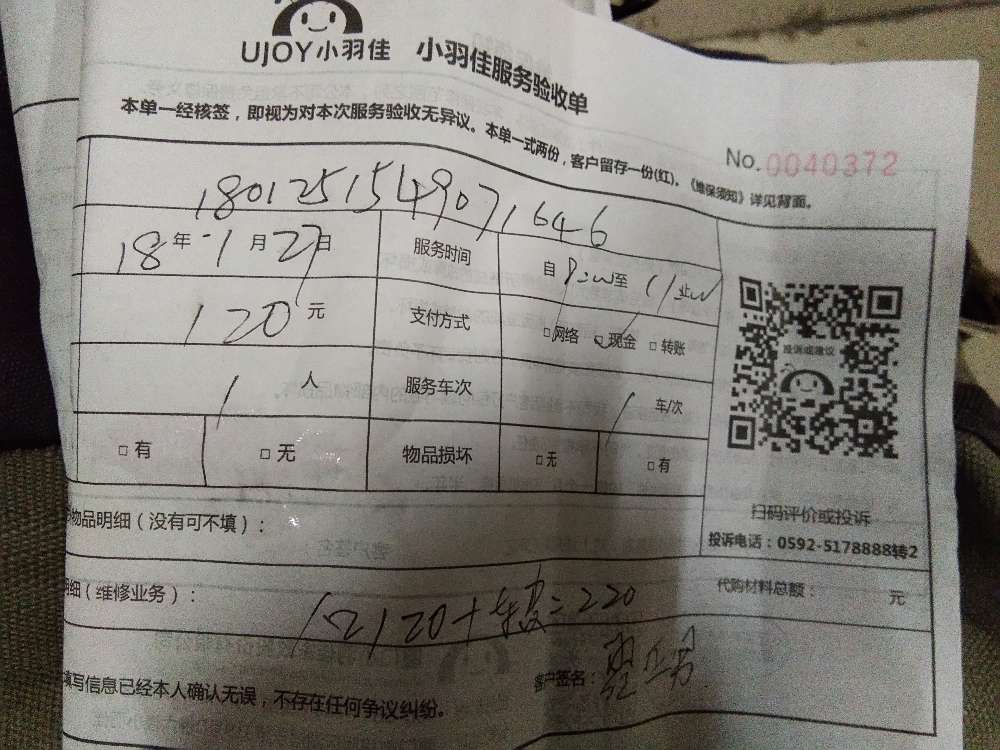 UJOY小羽佳 小羽佳服务验收单
本单一经核签，即视为对本次服务验收无异议。本单一式两份，客户留存一份(红)。《维保须知》详见背面。
No.0040372
1801251549071646
18年 1月27日 服务时间 自8:00至11
120元 支付方式 □网络 □现金 □转账
1人 服务车次 1车/次
□有 □无 物品损坏 □无 □有
投诉或建议
扫码评价或投诉
投诉电话：0592-5178888转2
物品明细（没有可不填）：
明细（维修业务）： 代购材料总额： 元
120+车费=220
填写信息已经本人确认无误，不存在任何争议纠纷。 客户签名：